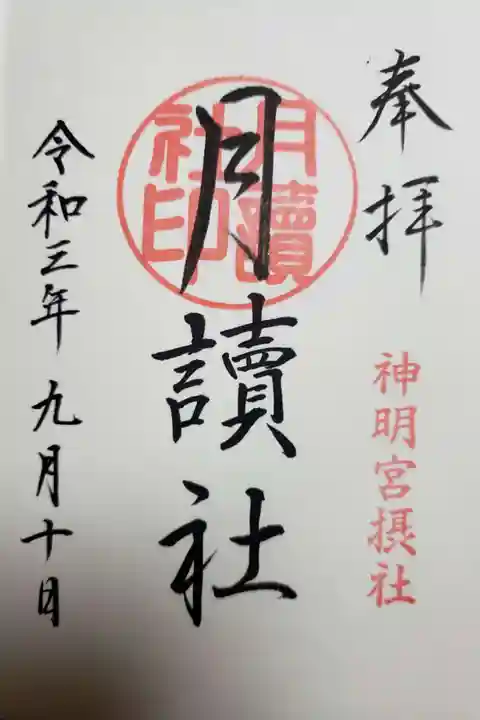 奉拝
神明宮摂社
月讀社
月讀社印
令和三年九月十日